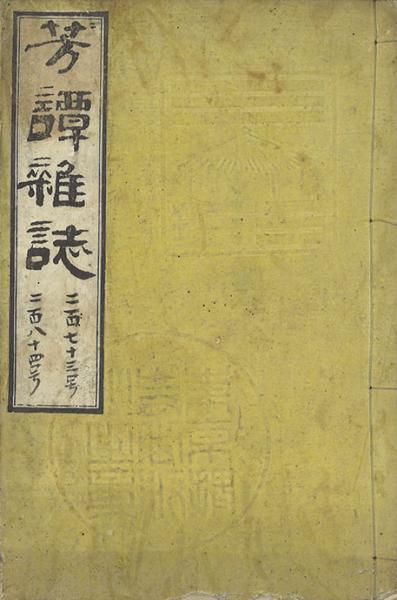 芳譚雜誌
二百七十三号
二百八十四号